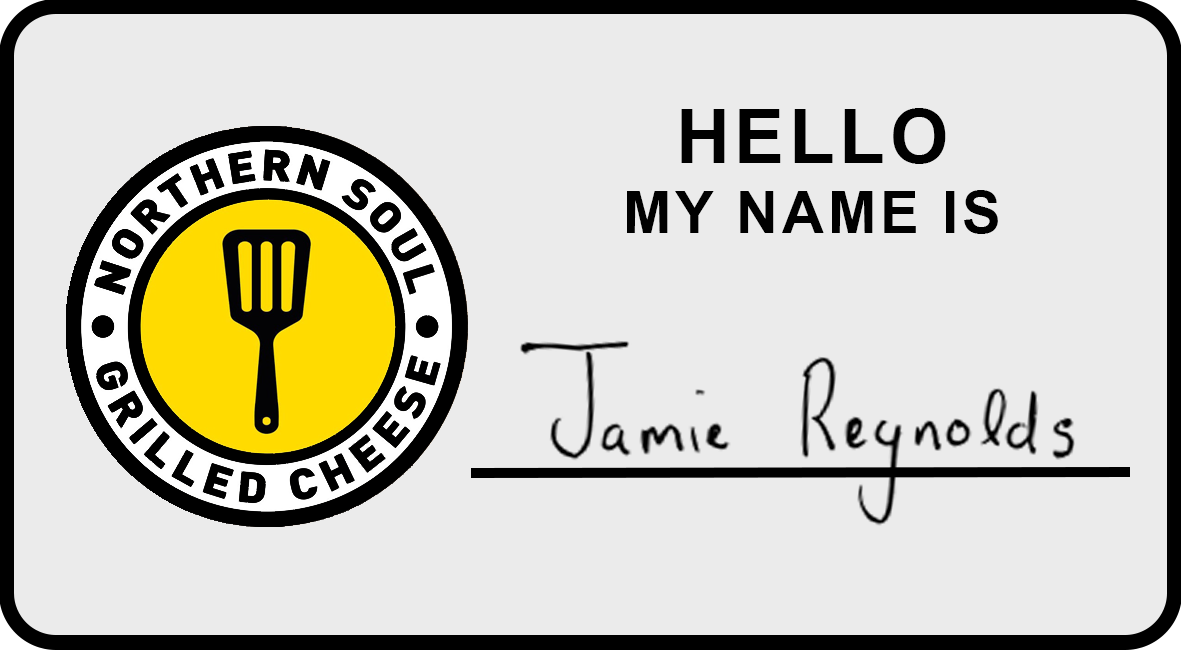 NORTHERN SOUL
GRILLED CHEESE
HELLO
MY NAME IS
Jamie Reynolds